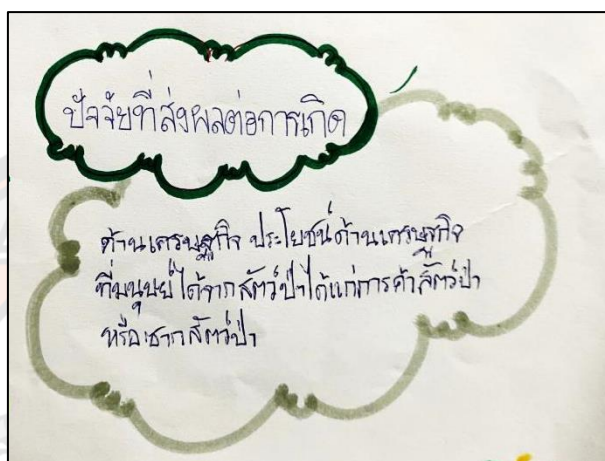 ปัจจัยที่ส่งผลต่อการเกิด
ด้านเศรษฐกิจ ประโยชน์ด้านเศรษฐกิจ
ที่มนุษย์ได้จากสัตว์ป่าได้แก่การค้าสัตว์ป่า
หรือซากสัตว์ป่า